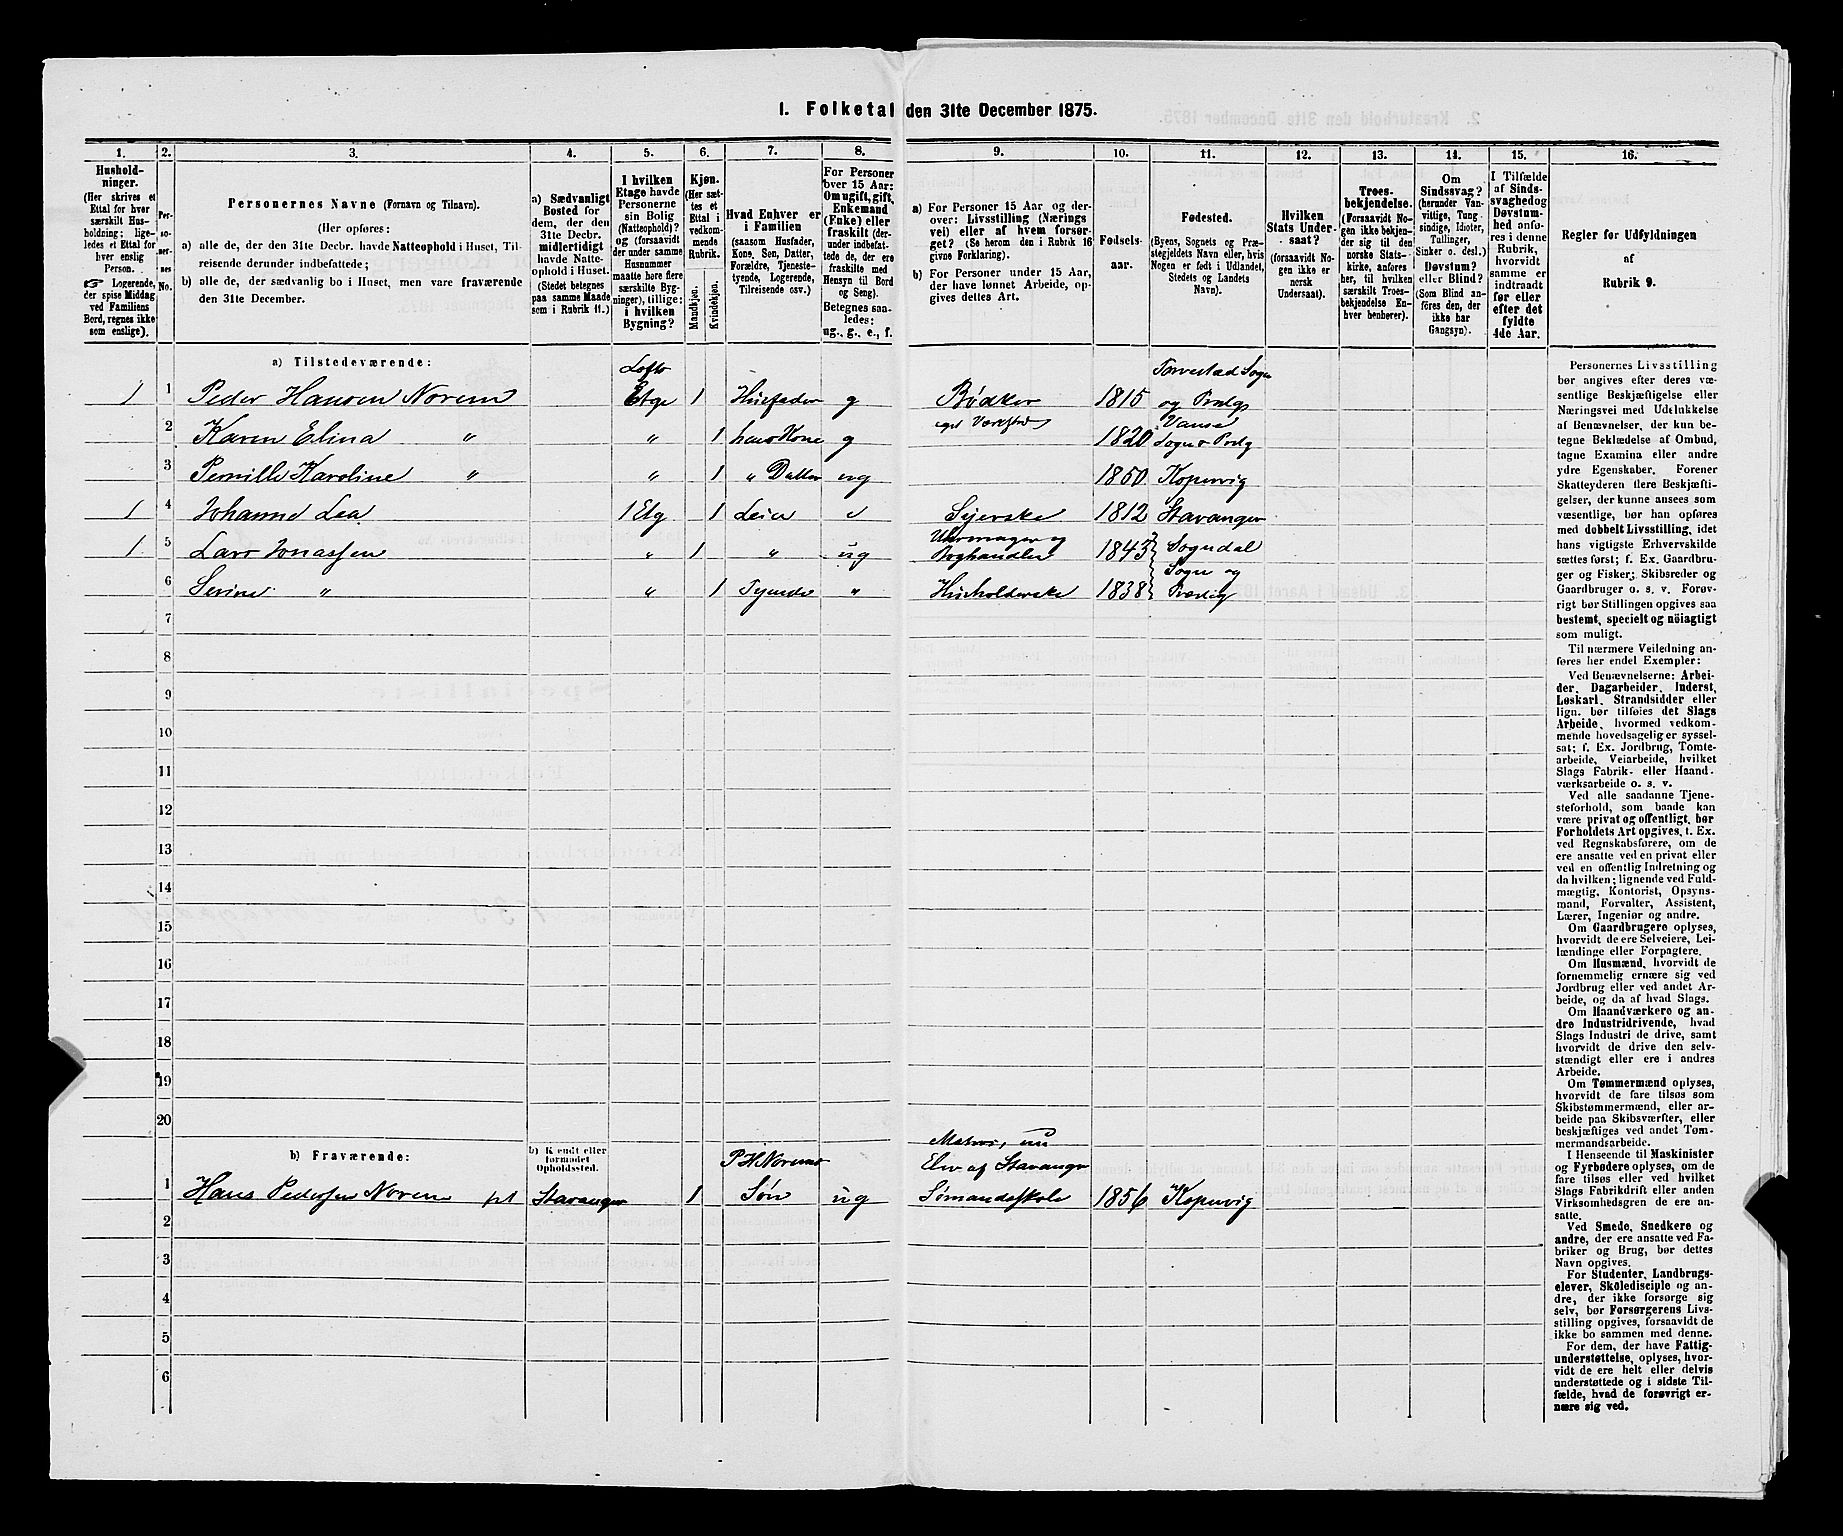 1. Folketal den 31te December 1875.
1. 2. 3. 4. 5. 6. 7. 8. 9. 10. 11. 12. 13. 14. 15. 16.
Hushold-
ninger.
(Her skrives et
Ettal for hver
særskilt Hus-
holdning; lige-
ledes et Ettal for
hver enslig
Person.
☞ Logerende,
der spise Middag
ved Familiens
Bord, regnes ikke
som enslige).
Per-
so-
ner-
nes
No.
Personernes Navne (Fornavn og Tilnavn).
(Her opføres:
a) alle de, der den 31te Decbr. havde Natteophold i Huset, Til-
reisende derunder indbefattede;
b) alle de, der sædvanlig bo i Huset, men vare fraværende
den 31te December.
a) Sædvanligt
Bosted for
dem, der den
31te Decbr.
midlertidigt
havde Natte-
ophold i Huset.
(Stedet betegnes
paa samme Maade
som i Rubrik 11.)
I hvilken
Etage havde
Personerne
sin Bolig
(Natteophold)?
og (forsaavidt
der under samme
Husnummer
maatte høre flere
særskilte Byg-
ninger), tillige:
i hvilken
Bygning?
Kjøn.
(Her sæt-
tes et
Ettal i
vedkom-
mende
Rubrik.
Mandkjøn.
Kvindekjøn.
Hvad Enhver er
i Familien
(saasom Husfader,
Kone, Søn, Datter,
Forældre, Tjeneste-
tyende, Logerende,
Tilreisende osv.)
For Personer
over 15 Aar:
Om ugift, gift,
Enkemand
(Enke) eller
fraskilt (der-
under indbefat-
tede de, der ere
fraskilte med
Hensyn til Bord
og Seng).
Betegnes saa-
ledes:
ug., g., e., f.
a) For Personer 15 Aar og der-
over: Livsstilling (Nærings
vei) eller af hvem forsør-
get? (Se herom den i Rubrik 16
givne Forklaring).
b) For Personer under 15 Aar,
der have lønnet Arbeide, op-
gives dettes Art.
Fødsels-
aar.
Fødested.
(Byens, Sognets og Præ-
stegjeldets Navn eller, hvis
Nogen er født i Udlandet,
Stedets og Landets
Navn).
Hvilken
Stats Under-
saat?
(forsaavidt No-
gen ikke er
norsk
Undersaat).
Troes-
bekjendelse.
(Forsaavidt No-
gen ikke bekjen-
der sig til den
norske Stats-
kirke, anføres
her, til hvilken
særskilt Troes-
bekjendelse En-
hver henhører).
Om
Sindssvag?
(herunder Van-
vittige, Tung-
sindige, Idioter,
Tullinger,
Sinker o. desl.)
Døvstum?
eller Blind?
(Som Blind an-
føres den, der
ikke har
Gangsyn).
I Tilfælde
af Sinds-
svaghed og
Døvstum-
hed anfø-
res i denne
Rubrik,
hvorvidt
samme er
indtraadt
før eller
efter det
fyldte
4de Aar.
Regler for Udfyldningen
af
Rubrik 9.
a) Tilstedeværende:
Lofts Torvestad Sogn
1 1 Peder Hansen Norem Etge 1 Husfader g Bødker 1815 og Prælg
eget Værksted Vanse
2 Karen Elina " " 1 hans Kone g 1820 Sogn o Prelg
3 Pernille Karoline " " 1 " Datter ug 1850 Kopervig
1 4 Johanne Lea 1 Etg 1 Leier e Syerske 1812 Stavanger
Uhrmager og
1 5 Lars Jonassen " 1 " ug Boghandler 1843 Sogndal
Sogn og
6 Serine " " 1 Tyende " Husholderske 1838 Præstg
7
8
9
10
11
12
13
14
15
16
17
18
19
20
b) Fraværende:
b) Kendt eller
formodet
Opholdssted.
P H Norems Matros, nu
Elev af Stavanger
1 Hans Pedersen Norem pt Stavanger 1 Søn ug Sømandsskole 1856 Kopervig
2
3
4
5
6
Personernes Livsstilling
bør angives efter deres væ-
sentlige Beskjæftigelse eller
Næringsvei med Udelukkelse
af Benævnelser, der kun be-
tegne Beklædelse af Ombud,
tagne Examina eller andre
ydre Egenskaber. Forener
Skatteyderen flere Beskjæfti-
gelser, der kunne ansees som
væsentlige, bør han opføres
med dobbelt Livsstilling, idet
hans vigtigste Erhvervskilde
sættes først; f. Ex. Gaardbru-
ger og Fisker; Skibsreder og
Gaardbruger o. s. v. Forøv-
rigt bør Stillingen opgives saa
bestemt, specielt og nöiagtigt
som muligt.
Til nærmere Veiledning an-
føres her endel Exempler:
Ved Benævnelserne: Arbei-
der, Dagarbeider, Inderst,
Løskarl, Strandsidder eller
lign. bør tilføies det Slags
Arbeide, hvormed vedkom-
mende hovedsagelig er syssel-
sat; f. Ex. Jordbrug, Tomte-
arbeide, Veiarbeide, hvilket
Slags Fabrik- eller Haand-
værksarbeide o. s. v.
Ved alle saadanne Tjene-
steforhold, som baade kan
være privat og offentligt, bør
Forholdets Art opgives, t. Ex.
ved Regnskabsførere, om de
ere ansatte ved en privat eller
ved en offentlig Indretning og
da hvilken; lignende ved Fuld-
mægtig, Kontorist, Opsyns-
mand, Forvalter, Assistent,
Lærer, Ingeniør og andre.
Om Gaardbrugere oplyses,
hvorvidt de ere Selveiere, Lei-
lændinge eller Forpagtere.
Om Husmænd, hvorvidt de
fornemmelig ernære sig ved
Jordbrug eller ved andet Ar-
beide, og da af hvad Slags.
Om Haandværkere og an-
dre Industridrivende, hvad
Slags Industri de drive, samt
hvorvidt de drive den selv-
stændigt eller ere i andres
Arbeide.
Om Tømmermænd oplyses,
hvorvidt de fare tilsøs som
Skibstømmermænd, eller ar-
beide paa Skibsværfter, eller
beskjæftiges ved andet Tøm-
mermandsarbeide.
I Henseende til Maskinister
og Fyrbødere oplyses, om de
fare tilsøs eller ved hvilket
Slags Fabrikdrift eller anden
Virksomhedsgren de ere an-
satte.
Ved Smede, Snedkere og
andre, der ere ansatte ved Fa-
briker og Brug, bør dettes
Navn opgives.
For Studenter, Landbrugs-
elever, Skoledisciple og an-
dre, der ikke forsørge sig
selv, bør Forsørgerens Livs-
stilling opgives, forsaavidt de
ikke bo sammen med denne.
For dem, der have Fattig-
understøttelse, oplyses, hvor-
vidt de ere helt eller delvis
understøttede og i sidste Til-
fælde, hvad de forøvrigt er-
nære sig ved.